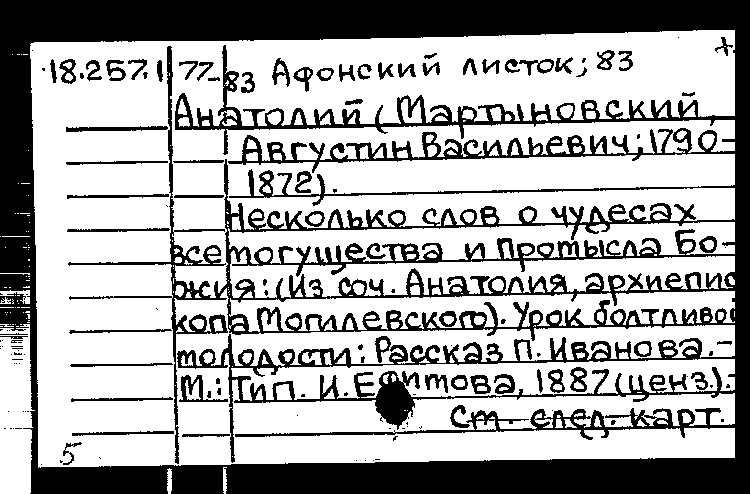 18.257.1 77-83 Афонский листок; 83 +
Анатолий (Мартыновский,
Августин Васильевич; 1790-
1872).
Несколько слов о чудесах
всемогущества и Промысла Бо-
жия: (Из соч. Анатолия, архиепис
копа Могилевского). Урок болтливой
молодости: Рассказ П. Иванова. -
М.: Тип. И. Ефимова, 1887 (ценз.). -
См. след. карт.
5